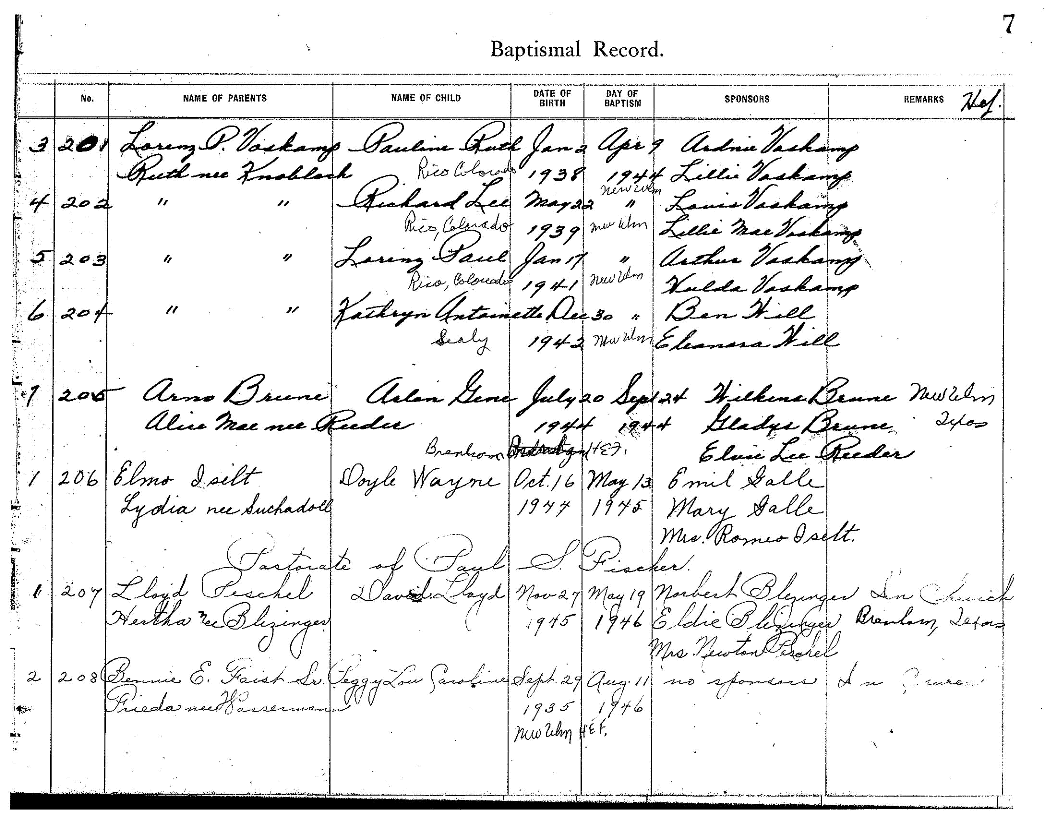 7
Baptismal Record.
No. NAME OF PARENTS NAME OF CHILD DATE OF BIRTH DAY OF BAPTISM SPONSORS REMARKS Hef.
3 201 Lorenz P. Voskamp Pauline Ruth Jan 2 Apr 9 Ardnie Voskamp
Ruth nee Knoblock Rico Colorado 1938 1944 Lillie Voskamp
New Ulm
4 202 " " Richard Lee May 22 " Louis Voskamp
Rico, Colorado 1939 New Ulm Lillie Mae Voskamp
5 203 " " Lorenz Paul Jan 17 " Arthur Voskamp
Rico, Colorado 1941 New Ulm Hulda Voskamp
6 204 " " Kathryn Antoinette Dec 30 " Ben Hill
Sealy 1942 New Ulm Eleanora Hill
7 205 Arno Brune Arlan Gene July 20 Sept 24 Wilkens Brune New Ulm
Alice Mae nee Reeder 1944 1944 Gladys Brune Texas
Brenham HEF. Elvie Lee Reeder
1 206 Elmo Iselt Doyle Wayne Oct. 16 May 13 Emil Galle
Lydia nee Suchadoll 1944 1945 Mary Galle
Mrs. Romeo Iselt.
Pastorate of Paul S Fischer.
1 207 Lloyd Peschel David Lloyd Nov 27 May 19 Norbert Blezinger In Church
Hertha nee Blezinger 1945 1946 Eldie Blezinger Brenham, Texas
Mrs Newton Peschel
2 208 Bennie E. Faist Sr. Peggy Lou Caroline Sept. 29 Aug 11 no sponsors In
Frieda nee Wasserman 1935 1946
New Ulm HEF.